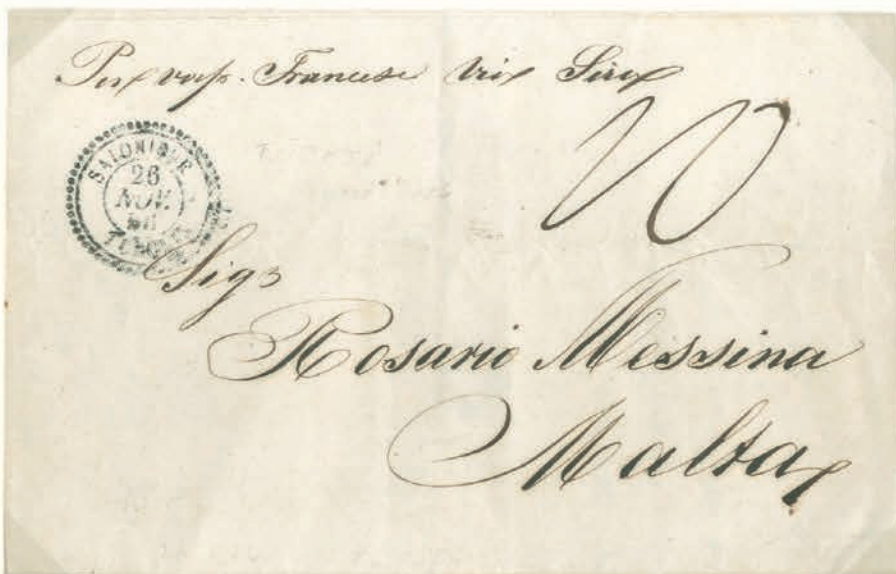 Per vap. Francese via Sira
SALONIQUE
26
NOV.
TURQUIE
10
Sigr
Rosario Messina
Malta